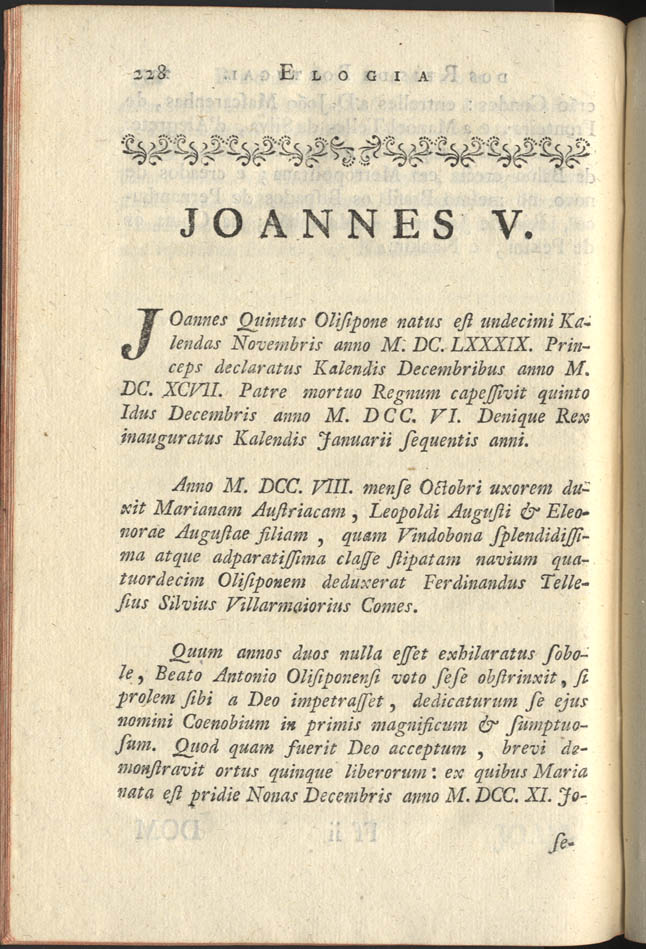 228 ELOGIA
JOANNES V.
JOannes Quintus Olisipone natus eſt undecimi Ka-
lendas Novembris anno M. DC. LXXXIX. Prin-
ceps declaratus Kalendis Decembribus anno M.
DC. XCVII. Patre mortuo Regnum capeſſivit quinto
Idus Decembris anno M. DCC. VI. Denique Rex
inauguratus Kalendis Januarii ſequentis anni.
Anno M. DCC. VIII. menſe Octobri uxorem du-
xit Marianam Auſtriacam, Leopoldi Auguſti & Eleo-
norae Auguſtae filiam, quam Vindobona ſplendidiſſi-
ma atque adparatiſſima claſſe ſtipatam navium qua-
tuordecim Oliſiponem deduxerat Ferdinandus Telle-
ſius Silvius Villarmaiorius Comes.
Quum annos duos nulla eſſet exhilaratus ſobo-
le, Beato Antonio Oliſiponenſi voto ſeſe obſtrinxit, ſi
prolem ſibi a Deo impetraſſet, dedicaturum ſe ejus
nomini Coenobium in primis magnificum & ſumptuo-
ſum. Quod quam fuerit Deo acceptum, brevi de-
monſtravit ortus quinque liberorum: ex quibus Maria
nata eſt pridie Nonas Decembris anno M. DCC. XI. Jo-
ſe-